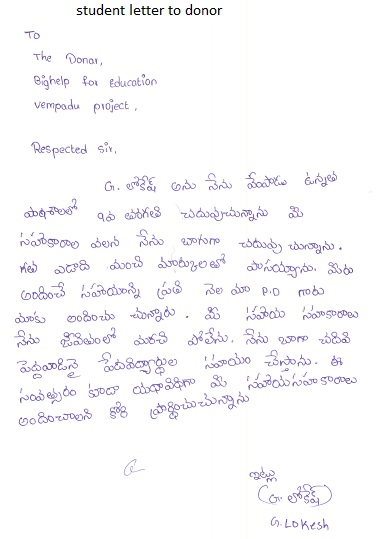 student letter to donor
To
The Donar,
Bighelp for Education
vempadu project,
Respected sir,
G. లోకేష్ అను నేను వేంపాడు ఉన్నత
పాఠశాలలో 9వ తరగతి చదువుచున్నాను మీ
సహకారాల వలన నేను బాగుగా చదువు చున్నాను.
గత ఏడాది మంచి మార్కులతో పాసయ్యాను. మీరు
అందించే సహాయాన్ని ప్రతి నెల మా P.D గారు
మాకు అందించు చున్నారు. మీ సహాయ సహకారాలు
నేను జీవితంలో మరచి పోలేను. నేను బాగా చదివి
పెద్దవాడినై పేదవిద్యార్థుల సహాయం చేస్తాను. ఈ
సంవత్సరం కూడా యథావిధిగా మీ సహాయసహకారాలు
అందించాలని కోరి ప్రార్థించుచున్నాను
ఇట్లు
(G. లోకేష్)
G. Lokesh